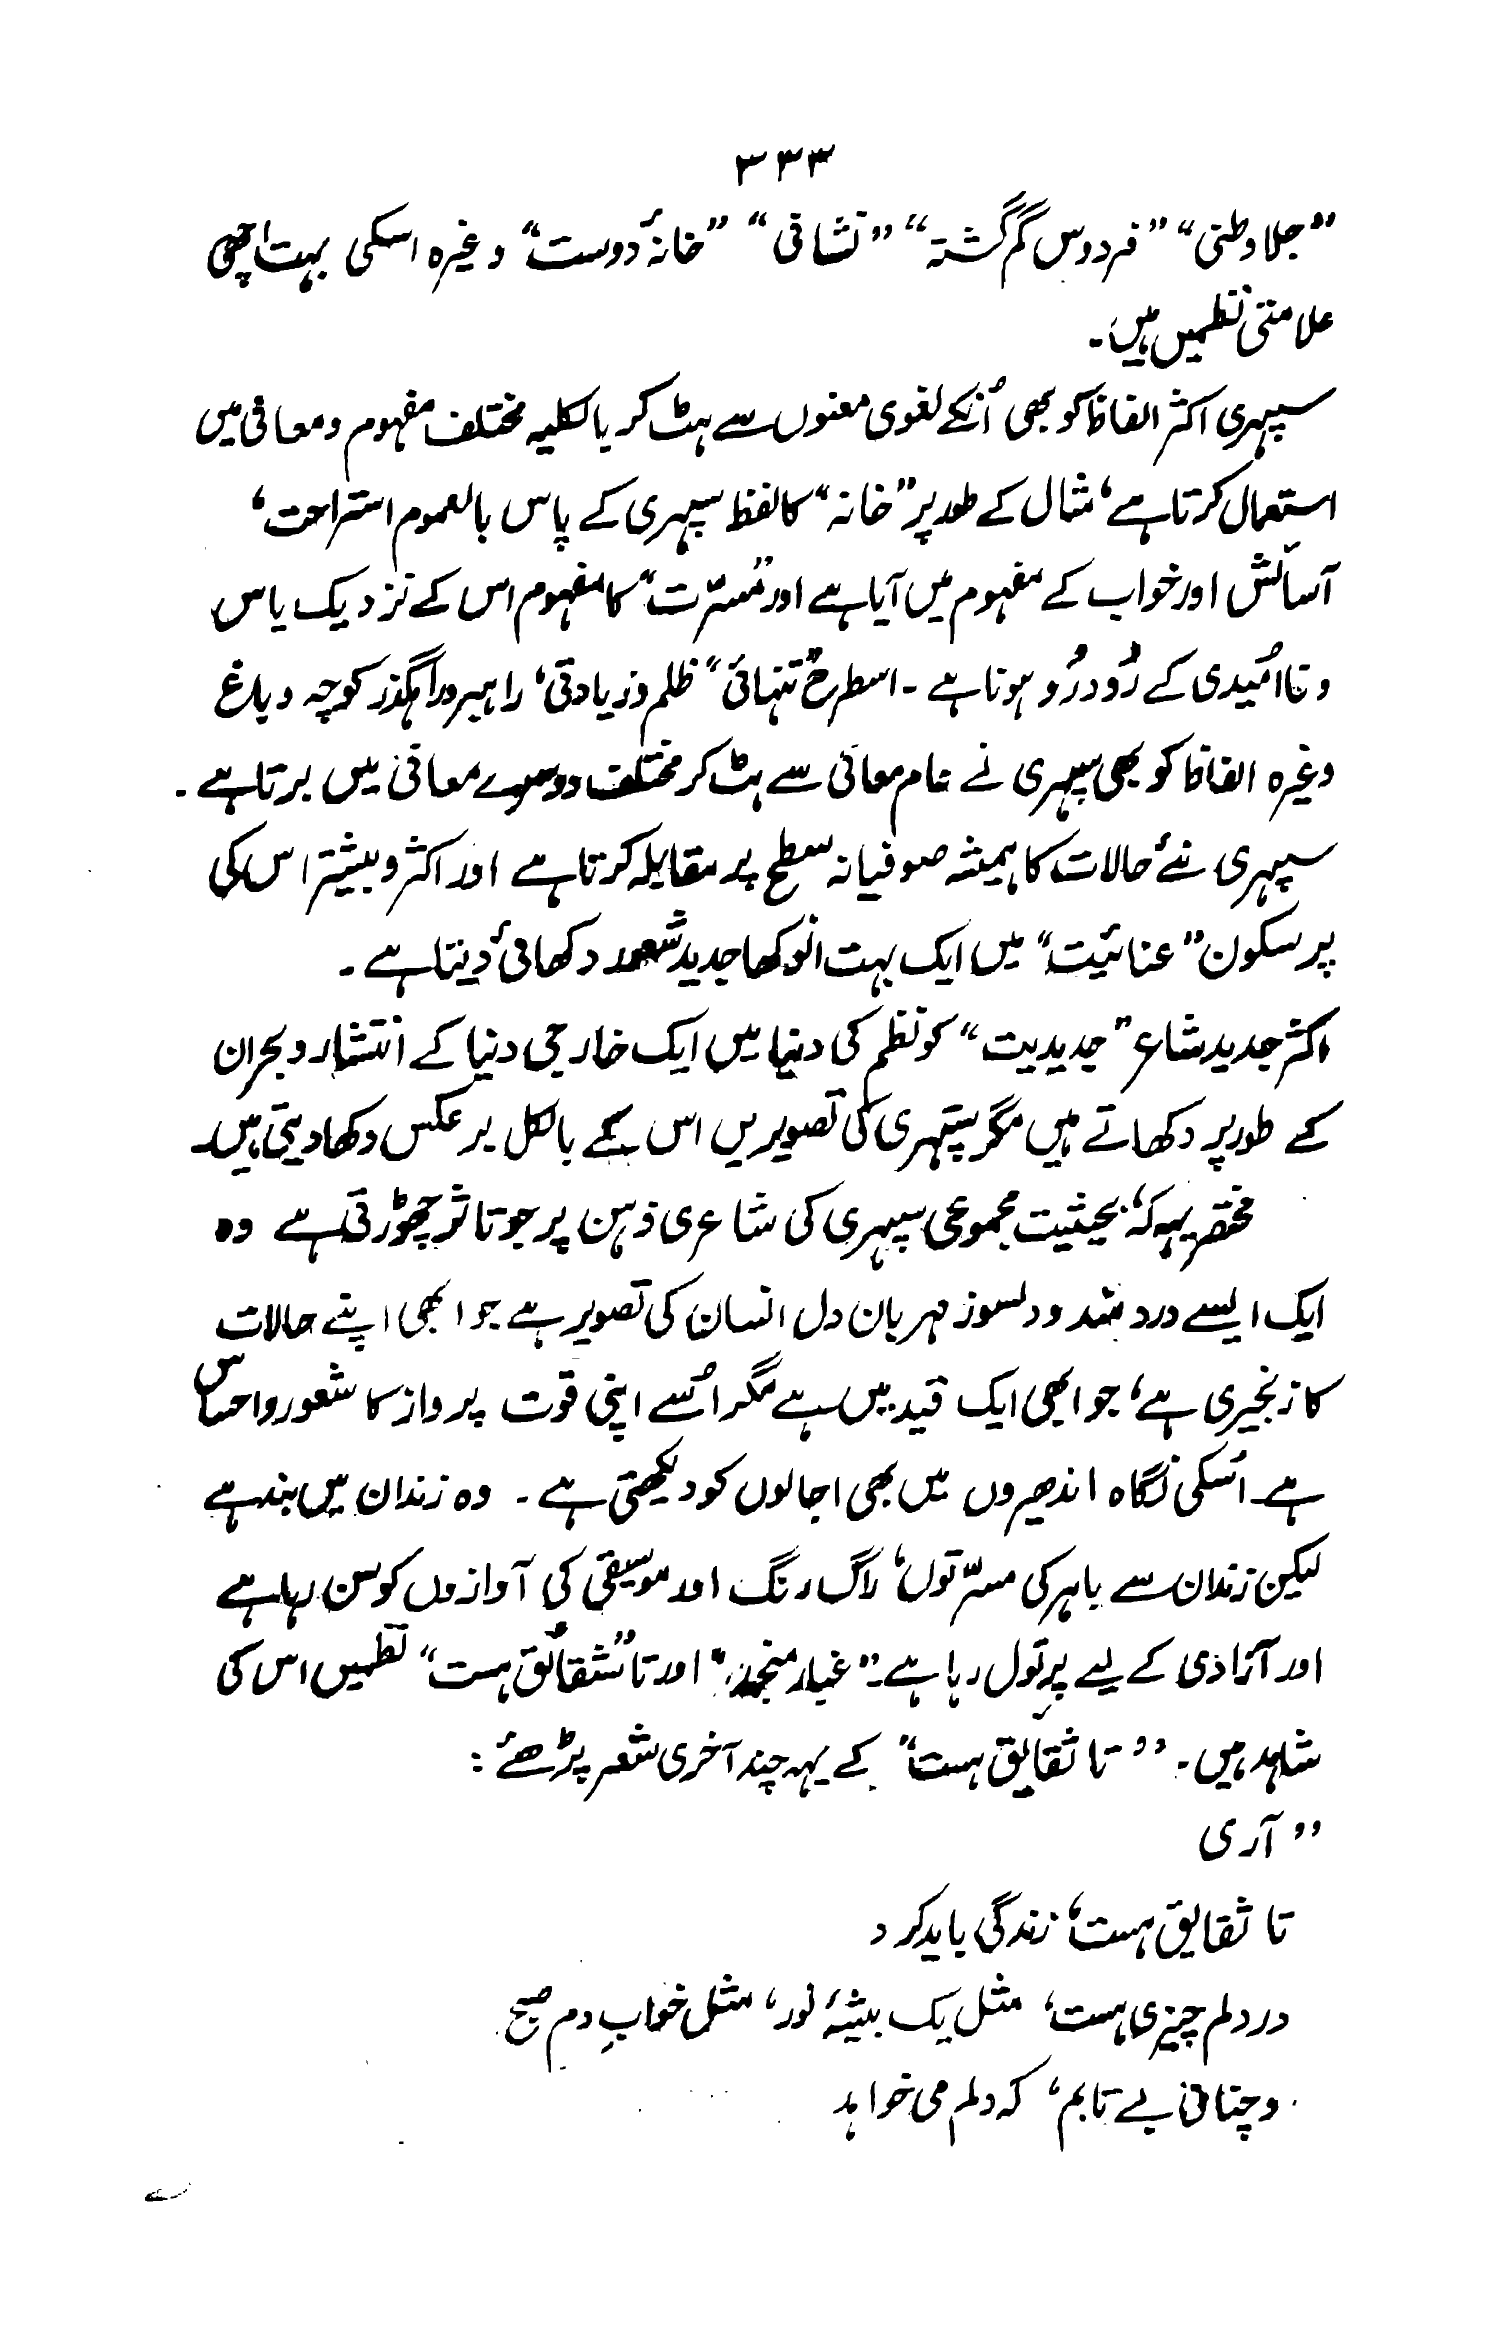 ۳۳۳
”جلاوطنی“ ”فردوس گم گشتہ“ ”نشانی“ ”خانۂ دوست“ وغیرہ اسکی بہت اچھی
علامتی نظمیں ہیں۔
سپہری اکثر الفاظ کو بھی اُنکے لغوی معنوں سے ہٹ کر بالکلیہ مختلف مفہوم و معانی میں
استعمال کرتا ہے، مثال کے طور پر ”خانہ“ کا لفظ سپہری کے پاس بالعموم استراحت،
آسائش اور خواب کے مفہوم میں آیا ہے اور ”مسرّت“ کا مفہوم اس کے نزدیک یاس
و نا اُمیدی کے رُو در رُو ہوتا ہے ۔ اسطرح ”تنہائی“ ظلم و زیادتی، راہبر و راہگذر کوچہ و باغ
وغیرہ الفاظ کو بھی سپہری نے عام معانی سے ہٹ کر مختلف دوسرے معانی میں برتا ہے ۔
سپہری نئے حالات کا ہمیشہ صوفیانہ سطح پر مقابلہ کرتا ہے اور اکثر و بیشتر اس کی
پر سکون ”عنائیت“ میں ایک بہت انوکھا جدید شعور دکھائی دیتا ہے ۔
اکثر جدید شاعر ”جدیدیت“ کو نظم کی دنیا میں ایک خارجی دنیا کے انتشار و بحران
کے طور پر دکھاتے ہیں مگر سپہری کی تصویریں اس کے بالکل برعکس دکھا دیتی ہیں۔
مختصر یہہ کہ، بحیثیت مجموعی سپہری کی شاعری ذہن پر جو تاثر چھوڑتی ہے وہ
ایک ایسے درد مند و دلسوز مہربان دل انسان کی تصویر ہے جو ابھی اپنے حالات
کا زنجیری ہے، جو ابھی ایک قید میں ہے مگر اُسے اپنی قوت پرواز کا شعور و احساس
ہے۔ اُسکی نگاہ اندھیروں میں بھی اجالوں کو دیکھتی ہے ۔ وہ زندان میں بند ہے
لیکن زندان سے باہر کی مسرّتوں، راگ رنگ اور موسیقی کی آوازوں کو سن رہا ہے
اور آزادی کے لیے پر تول رہا ہے۔ ”غبار منجمد“ اور ”تا شقائق ہست“ نظمیں اس کی
شاہد ہیں۔ ”تا شقایق ہست“ کے یہہ چند آخری شعر پڑھئے :
” آری
تا شقایق ہست، زندگی باید کرد
در دلم چیزی ہست، مثل یک بیشۂ نور، مثل خوابِ دم صبح
و چنانی بے تابم، کہ دلم می خواہد